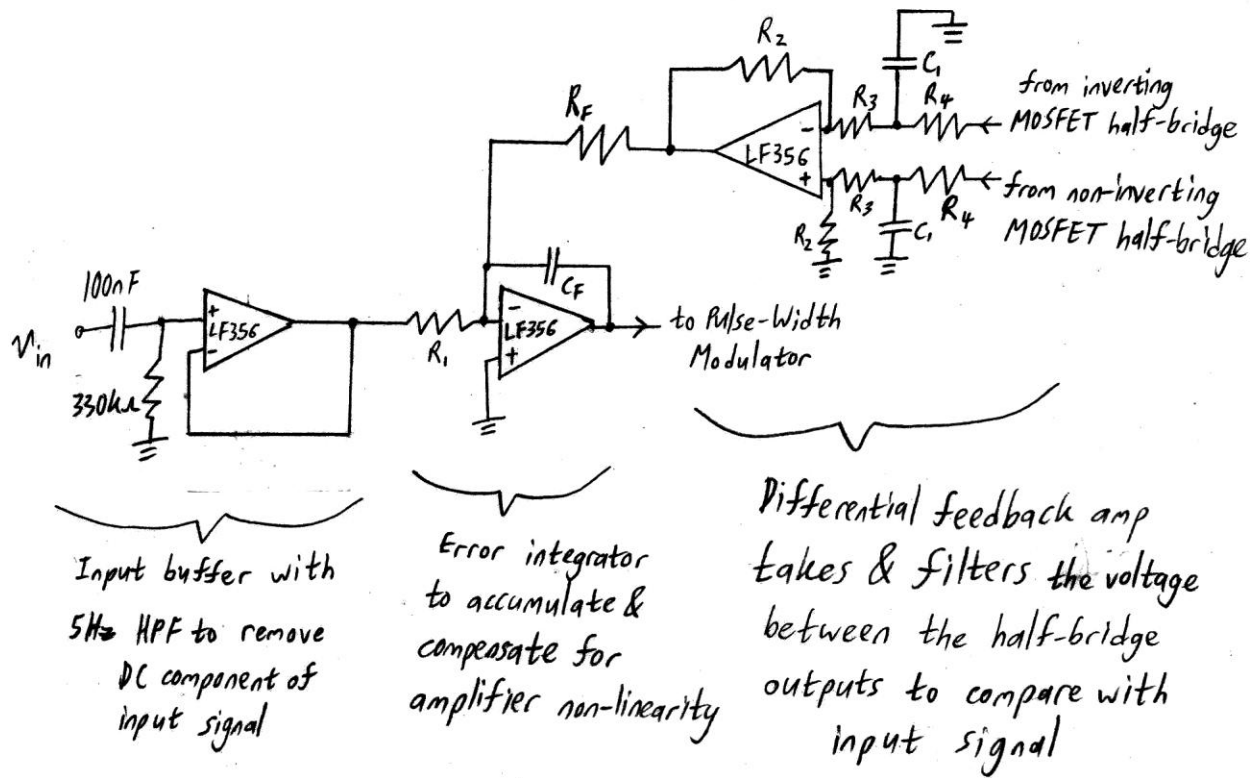 R2
C1
RF
R3
R4
from inverting
MOSFET half-bridge
-
LF356
+
from non-inverting
MOSFET half-bridge
R3
R4
R2
C1
100nF
CF
Vin
+
LF356
-
R1
-
LF356
+
to Pulse-Width
Modulator
330kΩ
Input buffer with
5Hz HPF to remove
DC component of
input signal
Error integrator
to accumulate &
compensate for
amplifier non-linearity
Differential feedback amp
takes & filters the voltage
between the half-bridge
outputs to compare with
input signal